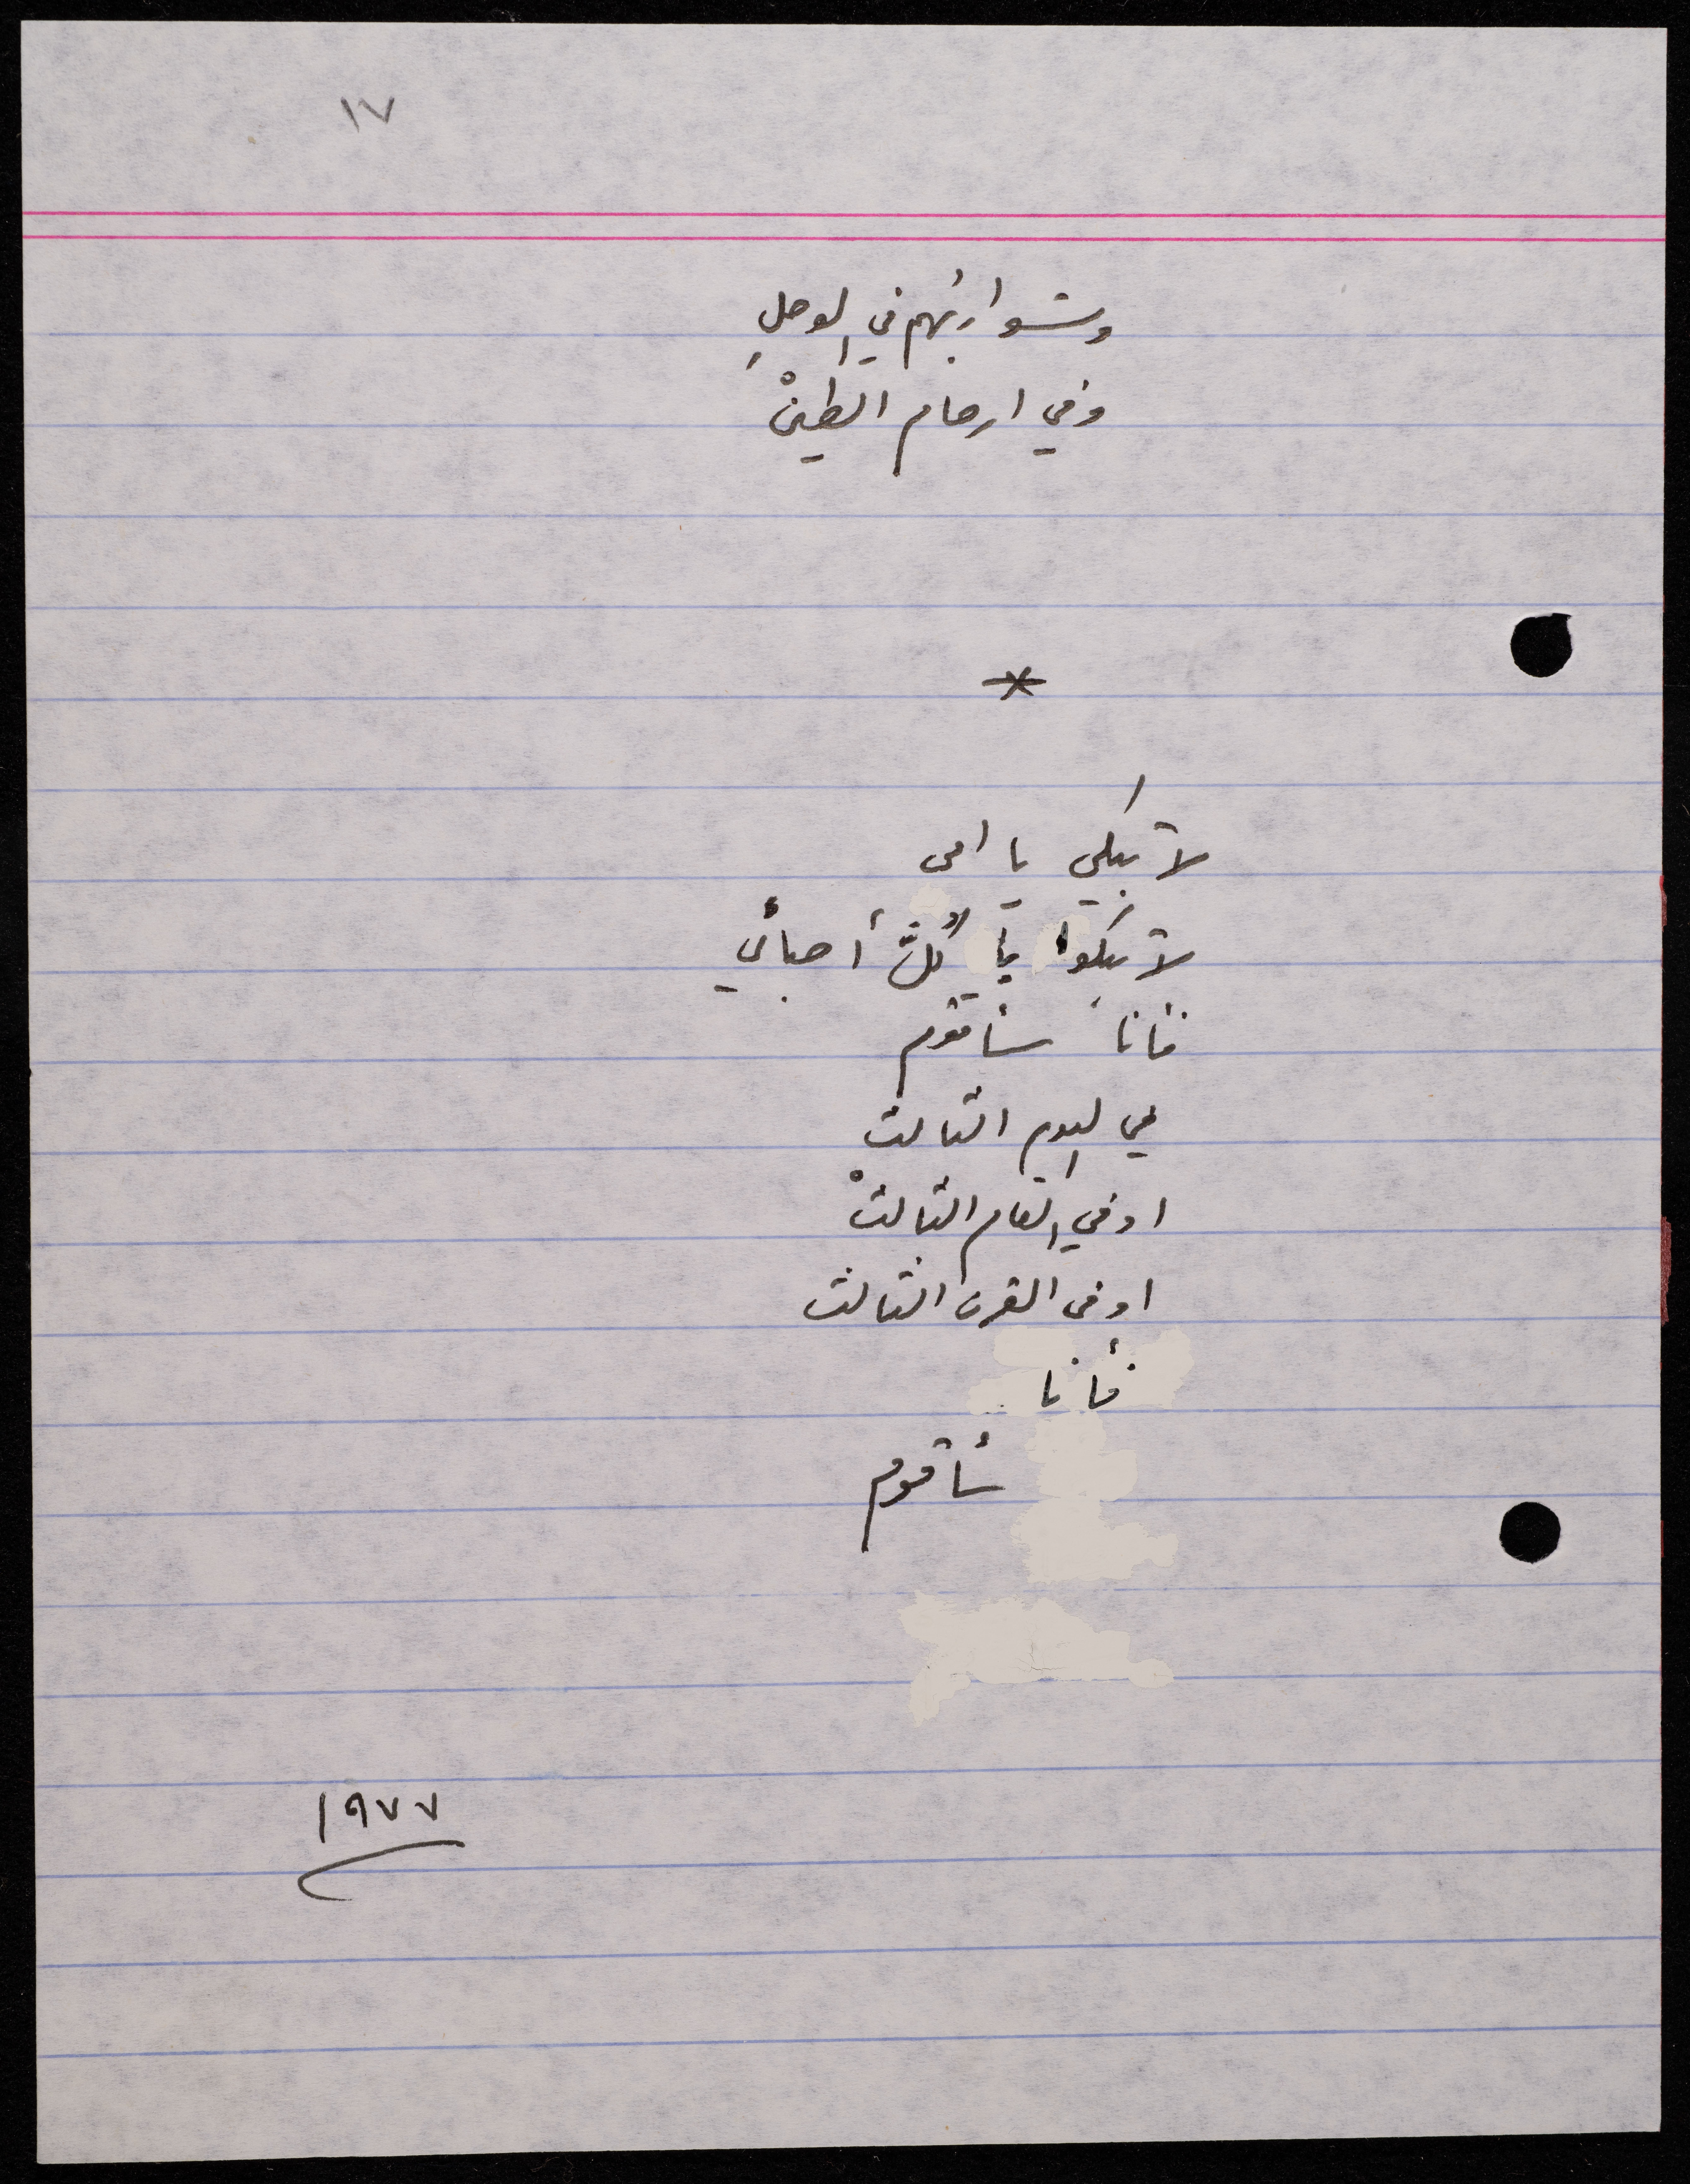 ١٧
وشواربُهم في الوحلِ
وفي ارحام الطينْ
*
لا تبكي يا امي
لا تبكوا يا كُلَّ أحبائي
فأنا سأقوم
في اليوم الثالث
او في العام الثالثْ
او في القرن الثالث
فأنا ..
سأقوم
١٩٧٧